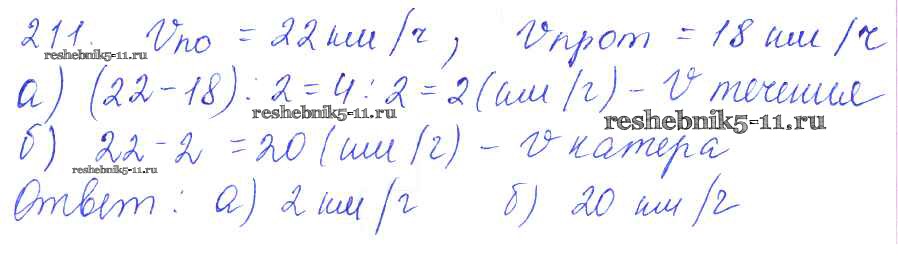 211. Vпо = 22 км/ч, Vпрот = 18 км/ч
reshebnik5-11.ru
а) (22-18) : 2 = 4 : 2 = 2 (км/ч) - V течения
reshebnik5-11.ru
reshebnik5-11.ru
б) 22-2 = 20 (км/ч) - V катера
reshebnik5-11.ru
Ответ: а) 2 км/ч б) 20 км/ч